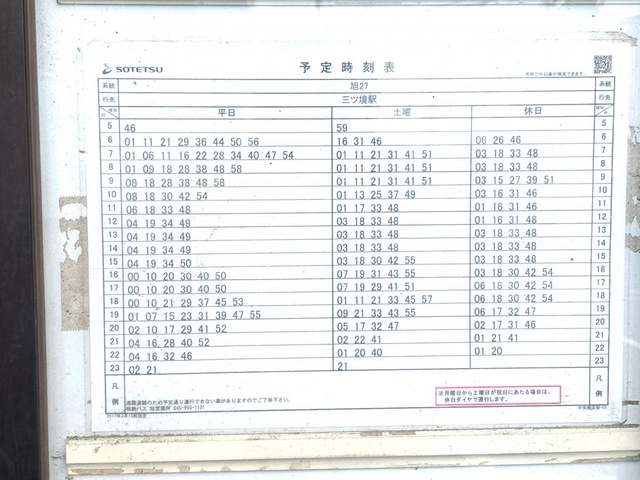 SOTETSU 予定時刻表
系統 旭27
行先 三ツ境駅
平日 土曜 休日
5 46 59 5
6 01 11 21 29 36 44 50 56 16 31 46 06 26 46 6
7 01 06 11 16 22 28 34 40 47 54 01 11 21 31 41 51 03 18 33 48 7
8 01 09 18 28 38 48 58 01 11 21 31 41 51 03 18 33 48 8
9 08 18 28 38 48 58 01 11 21 31 41 51 03 15 27 39 51 9
10 08 18 30 42 54 01 13 25 37 49 03 16 31 46 10
11 06 18 33 48 01 17 33 48 01 16 31 46 11
12 04 19 34 49 03 18 33 48 01 16 31 48 12
13 04 19 34 49 03 18 33 48 03 18 33 48 13
14 04 19 34 49 03 18 33 48 03 18 33 48 14
15 04 19 34 50 03 18 30 42 55 03 18 33 48 15
16 00 10 20 30 40 50 07 19 31 43 55 03 18 30 42 54 16
17 00 10 20 30 40 50 07 19 29 41 51 06 18 30 42 54 17
18 00 10 21 29 37 45 53 01 11 21 33 45 57 06 18 30 42 54 18
19 01 07 15 23 31 39 47 55 09 21 33 43 55 06 17 32 47 19
20 02 10 17 29 41 52 05 17 32 47 02 17 31 46 20
21 04 16 28 40 52 02 22 41 01 21 41 21
22 04 16 32 46 01 20 40 01 20 22
23 02 21 21 23
凡例 凡例
道路混雑のため予定通り運行できない事がありますのでご了承下さい。
相鉄バス 旭営業所
※月曜日から土曜日が祝日にあたる場合は、
休日ダイヤで運行します。